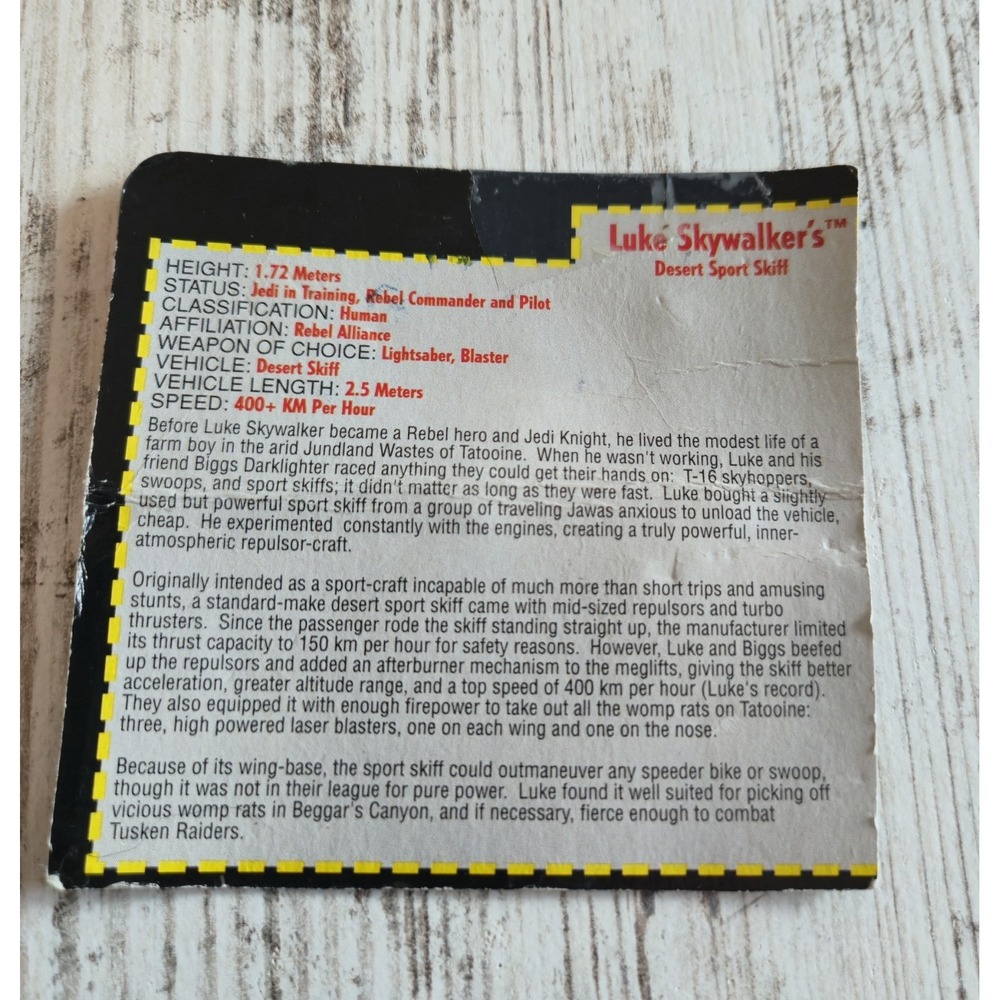 Luke Skywalker's™
Desert Sport Skiff
HEIGHT: 1.72 Meters
STATUS: Jedi in Training, Rebel Commander and Pilot
CLASSIFICATION: Human
AFFILIATION: Rebel Alliance
WEAPON OF CHOICE: Lightsaber, Blaster
VEHICLE: Desert Skiff
VEHICLE LENGTH: 2.5 Meters
SPEED: 400+ KM Per Hour
Before Luke Skywalker became a Rebel hero and Jedi Knight, he lived the modest life of a
farm boy in the arid Jundland Wastes of Tatooine. When he wasn't working, Luke and his
friend Biggs Darklighter raced anything they could get their hands on: T-16 skyhoppers,
swoops, and sport skiffs; it didn't matter as long as they were fast. Luke bought a slightly
used but powerful sport skiff from a group of traveling Jawas anxious to unload the vehicle,
cheap. He experimented constantly with the engines, creating a truly powerful, inner-
atmospheric repulsor-craft.
Originally intended as a sport-craft incapable of much more than short trips and amusing
stunts, a standard-make desert sport skiff came with mid-sized repulsors and turbo
thrusters. Since the passenger rode the skiff standing straight up, the manufacturer limited
its thrust capacity to 150 km per hour for safety reasons. However, Luke and Biggs beefed
up the repulsors and added an afterburner mechanism to the meglifts, giving the skiff better
acceleration, greater altitude range, and a top speed of 400 km per hour (Luke's record).
They also equipped it with enough firepower to take out all the womp rats on Tatooine:
three, high powered laser blasters, one on each wing and one on the nose.
Because of its wing-base, the sport skiff could outmaneuver any speeder bike or swoop,
though it was not in their league for pure power. Luke found it well suited for picking off
vicious womp rats in Beggar's Canyon, and if necessary, fierce enough to combat
Tusken Raiders.